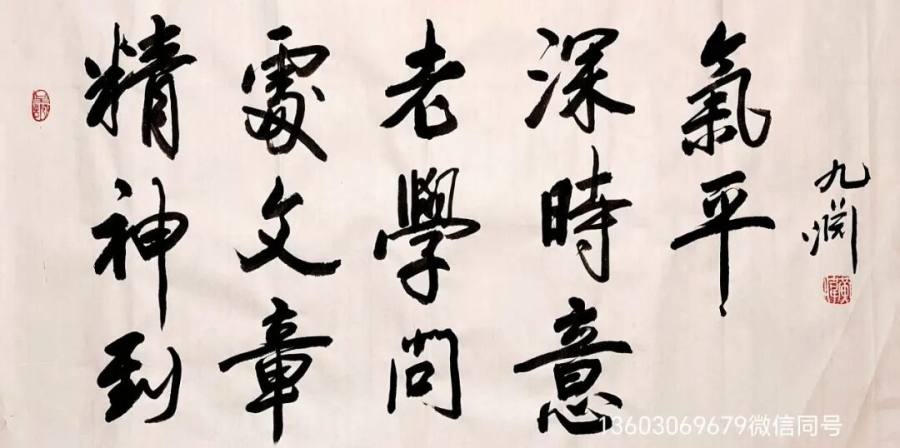 精神到
處文章
老學問
深時意
氣平
九渊
13603069679微信同号